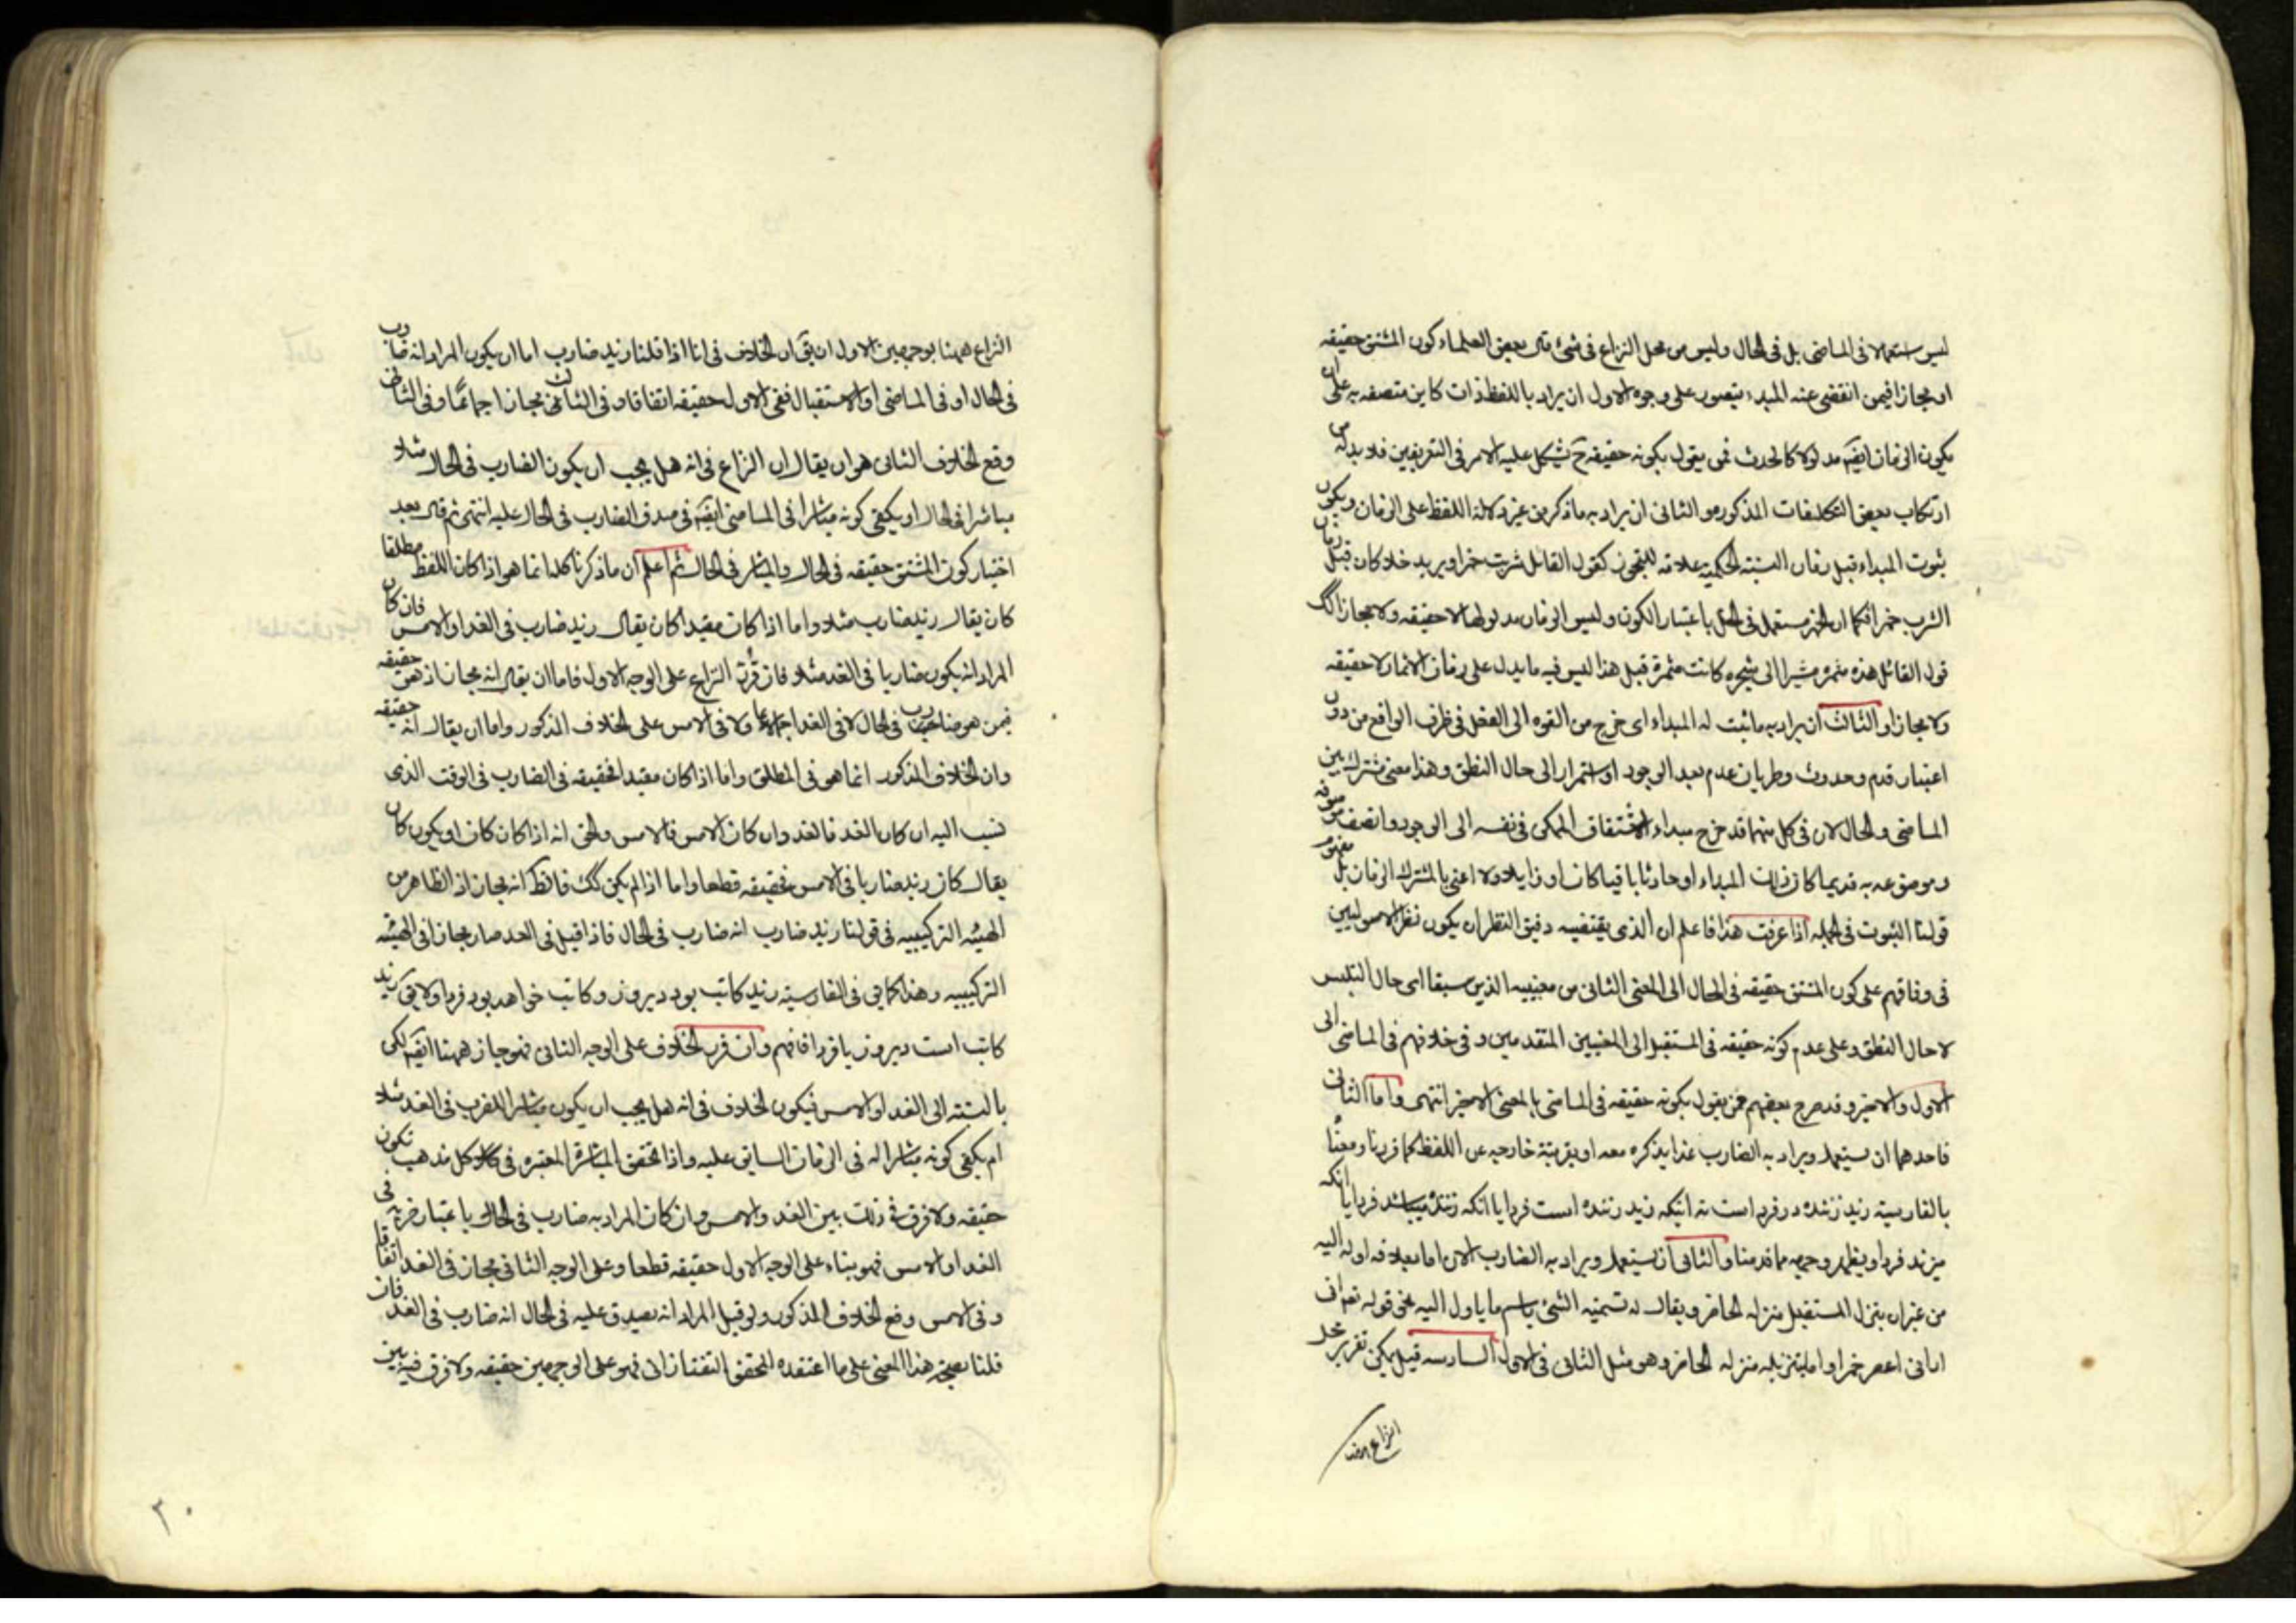 ليس استعمالا فى الماضى بل فى الحال وليس من محل النزاع فى شئ قال بعض العلماء كون المشتق حقيقه
او مجازا فيمن انقضى عنه المبدء يتصور على وجوه الاول ان يراد باللفظ ذات كاين متصفه به على ان
يكون الزمان ايضا مدلولا كالحدث فمن يقول بكونه حقيقه ح يشكل عليه الامر فى التعريفين فلا بد له من
ارتكاب بعض التكلفات المذكوره والثانى ان يراد به ما ذكر من غير دلالة اللفظ على الزمان ويكون
ثبوت المبداء قبل زمان النسبة الحكمية علاقه للتجوز كقول القائل شربت خمرا ويريد خلا كان قبل زمان
الشرب خمرا فكما ان الخمر مستعمل فى الخل باعتبار الكون وليس الزمان مدلولها لا حقيقه ولا مجازا كك
قول القائل هذه مثمره مشيرا الى شجره كانت مثمرة قبل هذا ليس فيه ما يدل على زمان الاثمار لا حقيقه
ولا مجازا والثالث ان يراد به ما ثبت له المبداء اى خرج من القوه الى الفعل فى ظرف الواقع من دون
اعتبار قدم وحدوث وطريان عدم بعد الوجود او استمرار الى حال النطق وهذا معنى مشترك بين
الماضى والحال لان فى كل منهما قد خرج مبداء الاشتقاق الممكن فى نفسه الى الوجود واتصف موصوفه
به قديما كان ذلك المبداء او حادثا باقيا كان او زايلا ولا اعنى بالمشترك الزمان بل مفهوم
قولنا الثبوت فى الجمله اذا عرفت هذا فاعلم ان الذى يقتضيه دقيق النظر ان يكون نظر الاصوليين
فى وفاقهم على كون المشتق حقيقه فى الحال الى المعنى الثانى من معنييه الذين سبقا اى حال التلبس
لا حال النطق وعلى عدم كونه حقيقه فى المستقبل الى المعنيين المتقدمين وفى خلافهم فى الماضى الى
الاول والاخير وقد صرح بعضهم ممن يقول بكونه حقيقه فى الماضى بالمعنى الاخير انتهى واما الثانى
فاحدهما ان يستعمل ويراد به الضارب غدا بذكره معه او بقرينة خارجيه عن اللفظ كما قررنا ومعناه
بالفارسية زيد زننده در فردا است نه اينكه زيد زننده است فردا يا آنكه زننده ميباشد فردا يا آنكه
ميزند فردا ويظهر وجهه مما قدمنا والثانى ان يستعمل ويراد به الضارب الان اما بعلاقه اوله اليه
من غير ان ينزل المستقبل منزله الحاضر ويقال له تسميته الشئ باسم ما ياول اليه نحو قوله تعالى انى
ارانى اعصر خمرا واما بتنزيله منزله الحاضر وهو مثل الثانى فى الاول السادسه قيل يمكن تقرير محل
النزاع ههنا
النزاع ههنا بوجهين الاول ان يق ان الخلاف فى انا اذا قلنا زيد ضارب اما ان يكون المراد انه ضارب
فى الحال او فى الماضى او الاستقبال ففى الاول حقيقه اتفاقا وفى الثالث مجاز اجماعًا وفى الثانى
وقع الخلاف الثانى هو ان يقال ان النزاع فى انه هل يجب ان يكون الضارب فى الحال مثلا
مباشرا فى الحال او يكفى كونه مباشرا فى الماضى ايضا فى صدق الضارب فى الحال عليه انتهى ثم قال بعد
اختيار كون المشتق حقيقه فى الحال والمباشر فى الحال ثم اعلم ان ما ذكرنا كله انما هو اذا كان اللفظ مطلقا
كان يقال زيد ضارب مثلا واما اذا كان مقيدا كان يقال زيد ضارب فى الغد او الامس فان كان
المراد انه يكون ضاربا فى الغد مثلا فان قُرّر النزاع على الوجه الاول فاما ان يقال انه مجاز اذ هو حقيقه
فيمن هو ضارب فى الحال لا فى الغد اجماعا ولا فى الامس على الخلاف المذكور واما ان يقال انه حقيقه
وان الخلاف المذكور انما هو فى المطلق واما اذا كان مقيد الحقيقه فى الضارب فى الوقت الذى
نسب اليه ان كان الغد فالغد وان كان الامس فالامس والحق انه اذا كان كان او يكون كان
يقال كان زيد ضاربا فى الامس فحقيقه قطعا واما اذا لم يكن كك فالظ انه مجاز اذ الظاهر من
الهيئه التركيبيه فى قولنا زيد ضارب انه ضارب فى الحال فاذا قيل فى الغد صار مجازا فى الهيئه
التركيبيه وهذا كما فى فى الفارسية زيد كاتب بود ديروز وكاتب خواهد بود فردا ولا يق زيد
كاتب است ديروز يا فردا فافهم وان قرر الخلاف على الوجه الثانى فهو جاز ههنا ايضا لكن
بالنسبة الى الغد او الامس فيكون الخلاف فى انه هل يجب ان يكون مباشرا للضرب فى الغد مثلا
ام يكفى كونه مباشرا له فى الزمان السابق عليه واذا تحقق المباشرة المعتبره فى كل مذهب تكون
حقيقه ولا فرق فى ذلك بين الغد والامس وان كان المراد به ضارب فى الحال باعتبار ضربه فى
الغد او الامس فهو بناء على الوجه الاول حقيقه قطعا وعلى الوجه الثانى مجاز فى الغد اتفاقا
وفى الامس وقع الخلاف المذكور ولو قيل المراد انه يصدق عليه فى الحال انه ضارب فى الغد فان
قلنا بصحة هذا المعنى على ما اعتقده المحقق التفتازانى فهو على الوجهين حقيقه ولا فرق فيه بين
٢٠